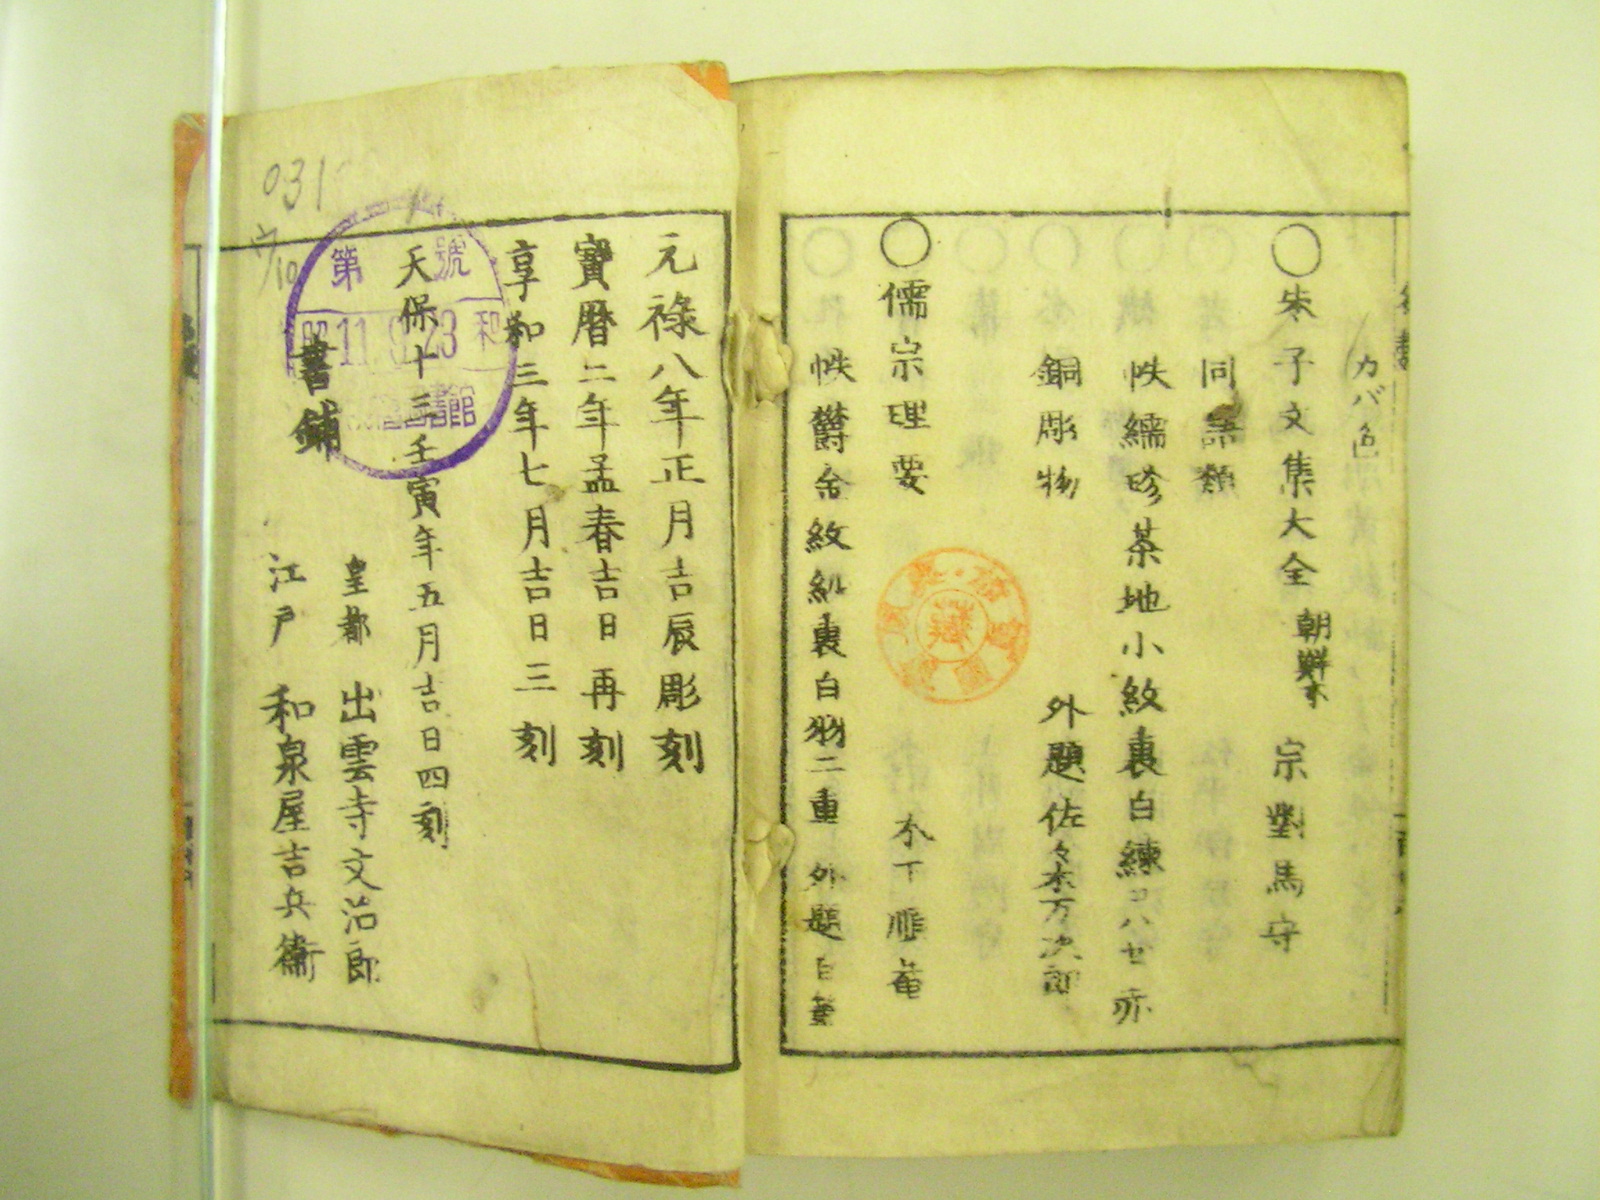 カバ色
○朱子文集大全 朝鮮本 宗對馬守
同語類
帙繻珍茶地小紋裏白練コハセ赤
銅彫物 外題佐々木万次郎
○儒宗理要 木下雁菴
帙欝金紋紗裏白羽二重 外題自筆
元祿八年正月吉辰彫刻
寶暦二年孟春吉日再刻
享和三年七月吉日三刻
天保十三壬寅年五月吉日四刻
書鋪
皇都 出雲寺文治郎
江戸 和泉屋吉兵衞
031
第 號
11. 9. 23